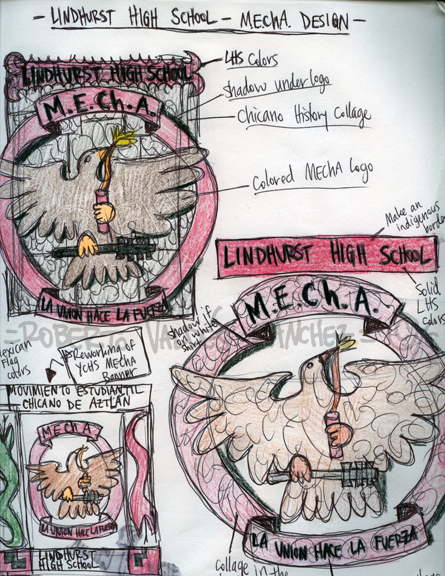 - LINDHURST HIGH SCHOOL - MECHA DESIGN -
LINDHURST HIGH SCHOOL
M.E.Ch.A.
LA UNION HACE LA FUERZA
LHS Colors
shadow under logo
Chicano History Collage
Colored MEChA logo
Make an
indigenous
border
LINDHURST HIGH SCHOOL
Solid
LHS
colors
M.E.Ch.A.
shadow if
on
shirt/white
LA UNION HACE LA FUERZA
Mexican
Flag
colors
*Reworking of
YCHS MEChA
Banner
MOVIMIENTO ESTUDIANTIL
CHICANO DE AZTLÁN
M.E.Ch.A.
LA UNION HACE LA FUERZA
LINDHURST
HIGH SCHOOL
Collage
in the